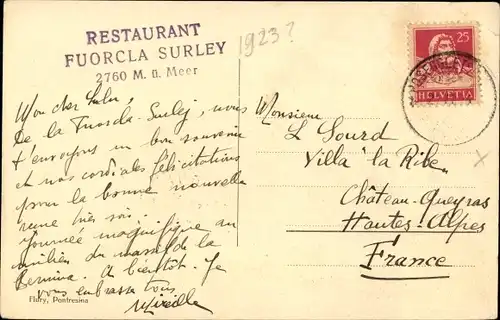 RESTAURANT
FUORCLA SURLEY
2760 M. ü. Meer
1923?
25
HELVETIA
Mon cher Lulu,
De la Fuorcla-Surlej, nous
t'envoyons un bon souvenir
et nos cordiales félicitations
pour la bonne nouvelle
reçue hier soir.
Journée magnifique au
milieu du massif de la
Bernina. A bientôt. Je
vous embrasse tous
Mireille
Monsieur
L Sourd
Villa "la Ribe"
Château-Queyras
Hautes-Alpes
France
Flury, Pontresina